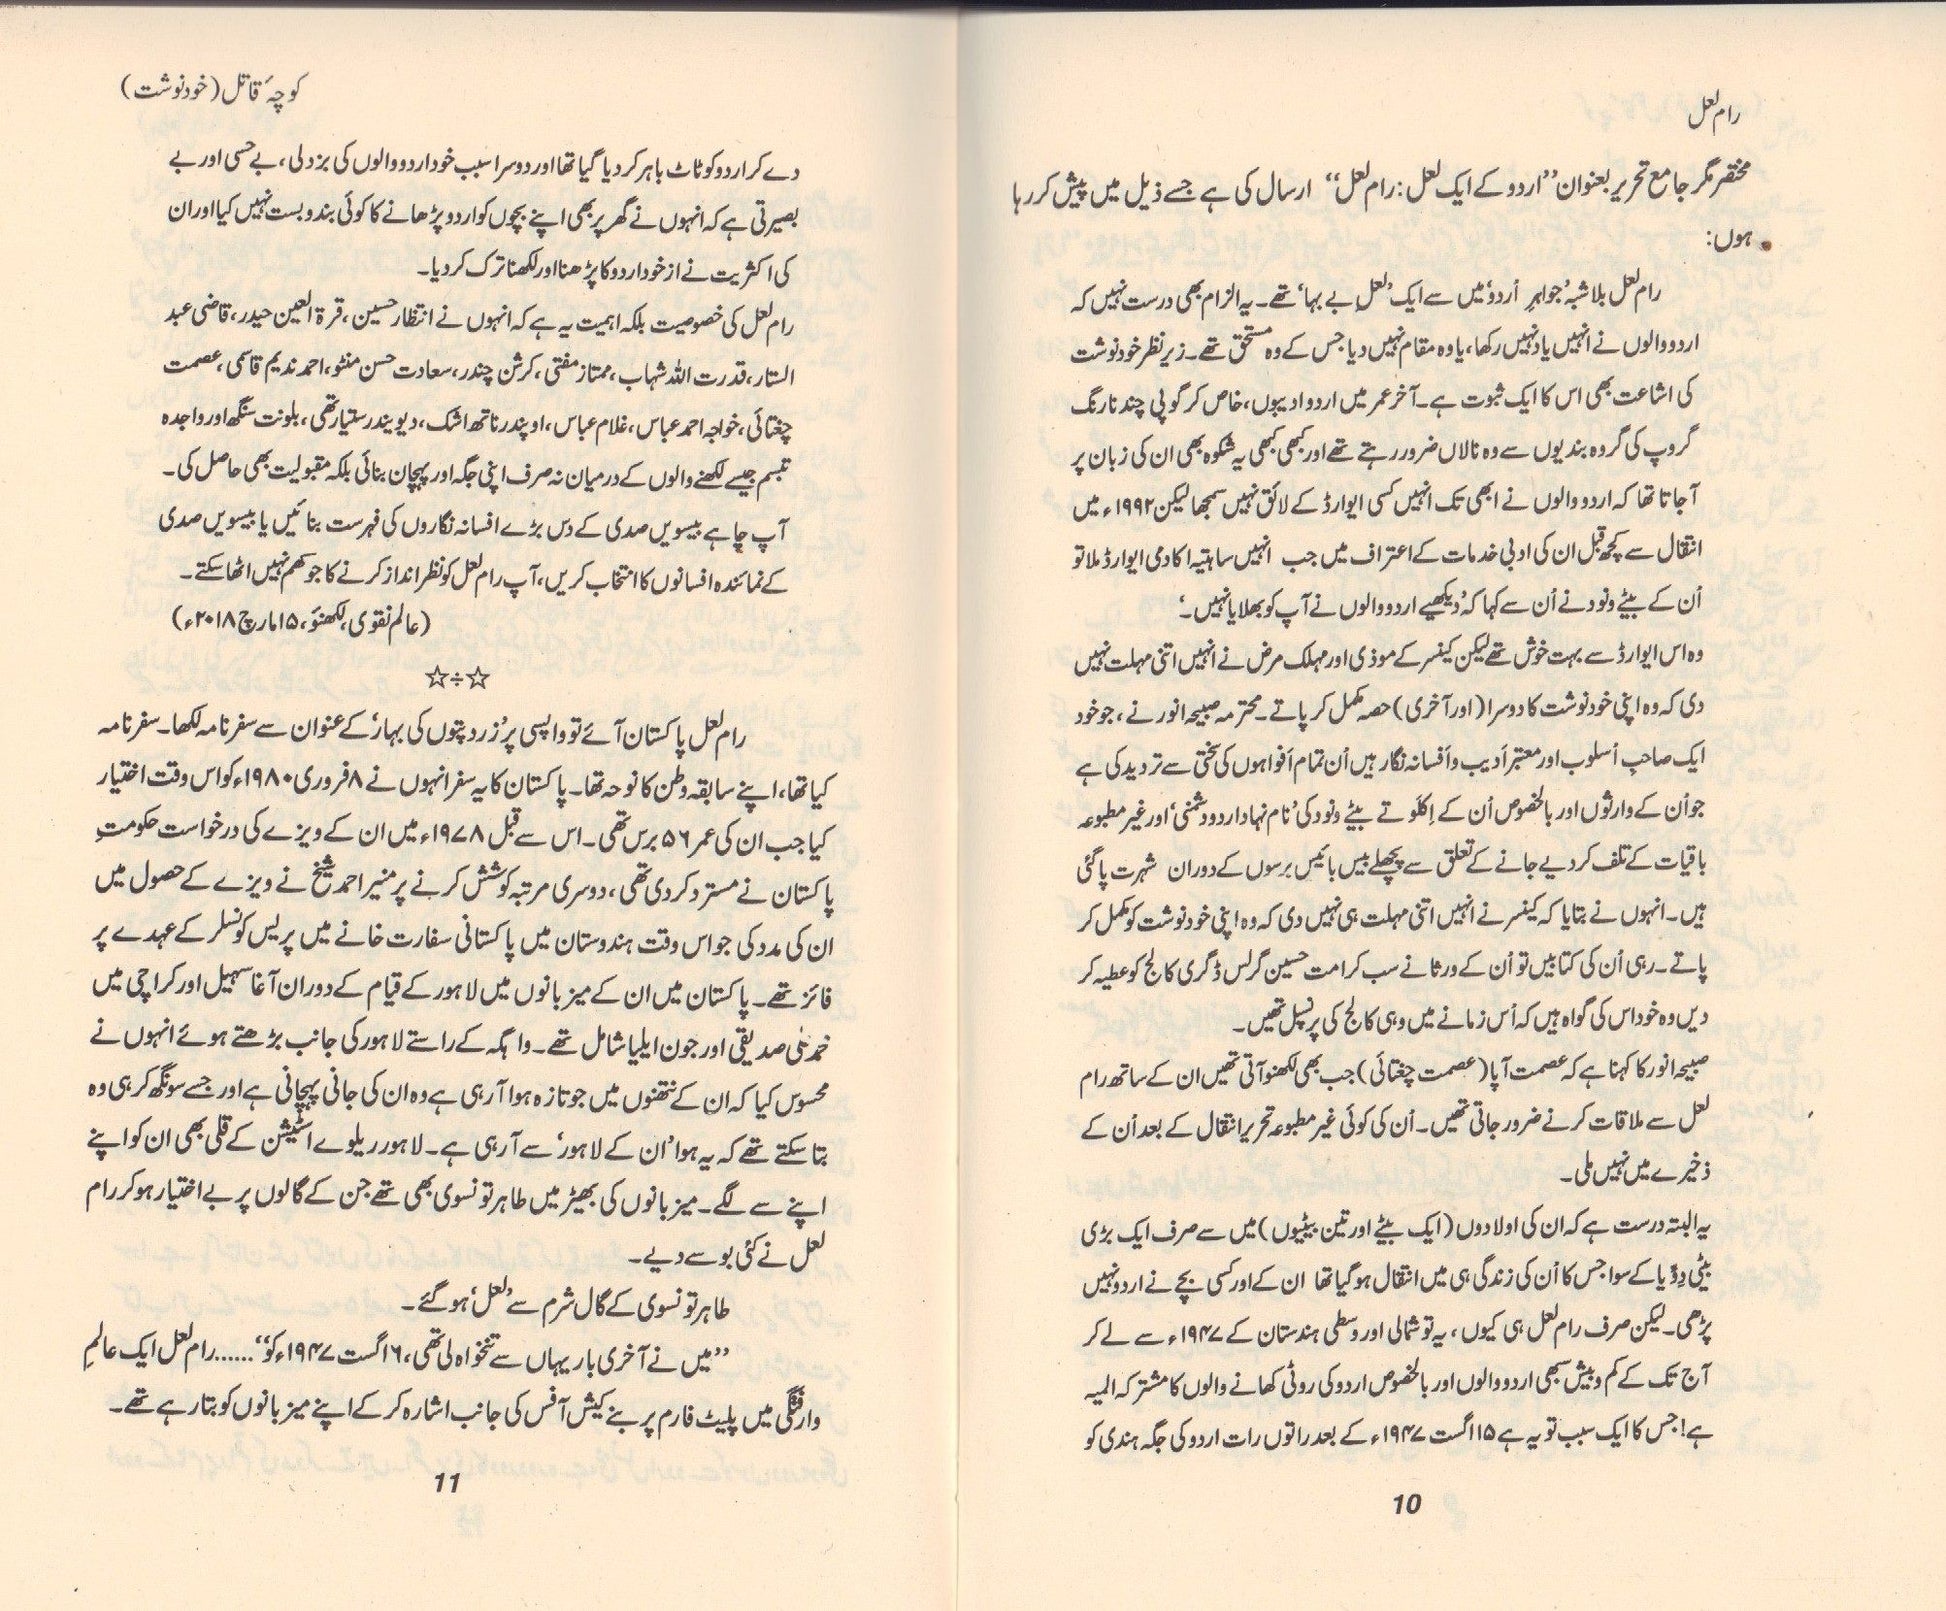 رام لعل
مختصر مگر جامع تحریر بعنوان ”اردو کے ایک لعل: رام لعل“ ارسال کی ہے جسے ذیل میں پیش کر رہا
ہوں:
رام لعل بلاشبہ ’جواہرِ اُردو‘ میں سے ایک ’لعلِ بے بہا‘ تھے۔ یہ الزام بھی درست نہیں کہ
اردو والوں نے انہیں یاد نہیں رکھا، یا وہ مقام نہیں دیا جس کے وہ مستحق تھے۔ زیرِ نظر خودنوشت
کی اشاعت بھی اس کا ایک ثبوت ہے۔ آخر عمر میں اردو ادیبوں، خاص کر گوپی چند نارنگ
گروپ کی گروہ بندیوں سے وہ نالاں ضرور رہتے تھے اور کبھی کبھی یہ شکوہ بھی ان کی زبان پر
آجاتا تھا کہ اردو والوں نے ابھی تک انہیں کسی ایوارڈ کے لائق نہیں سمجھا لیکن ۱۹۹۲ء میں
انتقال سے کچھ قبل ان کی ادبی خدمات کے اعتراف میں جب انہیں ساہتیہ اکادمی ایوارڈ ملا تو
اُن کے بیٹے ونود نے اُن سے کہا کہ ’دیکھیے اردو والوں نے آپ کو بھلایا نہیں۔‘
وہ اس ایوارڈ سے بہت خوش تھے لیکن کینسر کے موذی اور مہلک مرض نے انہیں اتنی مہلت نہیں
دی کہ وہ اپنی خودنوشت کا دوسرا (اور آخری) حصہ مکمل کر پاتے۔ محترمہ صبیحہ انور نے، جو خود
ایک صاحبِ اُسلوب اور معتبر اَدیب و اَفسانہ نگار ہیں اُن تمام اَفواہوں کی سختی سے تردید کی ہے
جو اُن کے وارثوں اور بالخصوص اُن کے اِکلوتے بیٹے ونود کی ’نام نہاد اردو دشمنی‘ اور غیر مطبوعہ
باقیات کے تلف کر دیے جانے کے تعلق سے پچھلے بیس بائیس برسوں کے دوران شہرت پا گئی
ہیں۔ انہوں نے بتایا کہ کینسر نے انہیں اتنی مہلت ہی نہیں دی کہ وہ اپنی خودنوشت کو مکمل کر
پاتے۔ رہی اُن کی کتابیں تو اُن کے ورثا نے سب کرامت حسین گرلس ڈگری کالج کو عطیہ کر
دیں وہ خود اس کی گواہ ہیں کہ اُس زمانے میں وہی کالج کی پرنسپل تھیں۔
صبیحہ انور کا کہنا ہے کہ عصمت آپا (عصمت چغتائی) جب بھی لکھنو آتی تھیں ان کے ساتھ رام
لعل سے ملاقات کرنے ضرور جاتی تھیں۔ اُن کی کوئی غیر مطبوعہ تحریر انتقال کے بعد اُن کے
ذخیرے میں نہیں ملی۔
یہ البتہ درست ہے کہ ان کی اولادوں (ایک بیٹے اور تین بیٹیوں) میں سے صرف ایک بڑی
بیٹی وِدّیا کے سوا جس کا اُن کی زندگی ہی میں انتقال ہو گیا تھا ان کے اور کسی بچے نے اردو نہیں
پڑھی۔ لیکن صرف رام لعل ہی کیوں، یہ تو شمالی اور وسطی ہندستان کے ۱۹۴۷ء سے لے کر
آج تک کے کم و بیش سبھی اردو والوں اور بالخصوص اردو کی روٹی کھانے والوں کا مشترکہ المیہ
ہے! جس کا ایک سبب تو یہ ہے ۱۵ اگست ۱۹۴۷ء کے بعد راتوں رات اردو کی جگہ ہندی کو
10
کوچۂ قاتل (خودنوشت)
دے کر اردو کو ٹاٹ باہر کر دیا گیا تھا اور دوسرا سبب خود اردو والوں کی بزدلی، بے حسی اور بے
بصیرتی ہے کہ انہوں نے گھر پر بھی اپنے بچوں کو اردو پڑھانے کا کوئی بندوبست نہیں کیا اور ان
کی اکثریت نے از خود اردو کا پڑھنا اور لکھنا ترک کر دیا۔
رام لعل کی خصوصیت بلکہ اہمیت یہ ہے کہ انہوں نے انتظار حسین، قرۃ العین حیدر، قاضی عبد
الستار، قدرت اللہ شہاب، ممتاز مفتی، کرشن چندر، سعادت حسن منٹو، احمد ندیم قاسمی، عصمت
چغتائی، خواجہ احمد عباس، غلام عباس، اوپندر ناتھ اشک، دیویندر ستیارتھی، بلونت سنگھ اور واجدہ
تبسم جیسے لکھنے والوں کے درمیان نہ صرف اپنی جگہ اور پہچان بنائی بلکہ مقبولیت بھی حاصل کی۔
آپ چاہے بیسویں صدی کے دس بڑے افسانہ نگاروں کی فہرست بنائیں یا بیسویں صدی
کے نمائندہ افسانوں کا انتخاب کریں، آپ رام لعل کو نظر انداز کرنے کا جوکھم نہیں اٹھا سکتے۔
(عالم نقوی، لکھنؤ، ۱۵ مارچ ۲۰۱۸ء)
☆÷☆
رام لعل پاکستان آئے تو واپسی پر ’زرد پتوں کی بہار‘ کے عنوان سے سفرنامہ لکھا۔ سفرنامہ
کیا تھا، اپنے سابقہ وطن کا نوحہ تھا۔ پاکستان کا یہ سفر انہوں نے ۸ فروری ۱۹۸۰ء کو اس وقت اختیار
کیا جب ان کی عمر ۵۶ برس تھی۔ اس سے قبل ۱۹۷۸ء میں ان کے ویزے کی درخواست حکومتِ
پاکستان نے مسترد کر دی تھی، دوسری مرتبہ کوشش کرنے پر منیر احمد شیخ نے ویزے کے حصول میں
ان کی مدد کی جو اس وقت ہندوستان میں پاکستانی سفارت خانے میں پریس کونسلر کے عہدے پر
فائز تھے۔ پاکستان میں ان کے میزبانوں میں لاہور کے قیام کے دوران آغا سہیل اور کراچی میں
محمد علی صدیقی اور جون ایلیا شامل تھے۔ واہگہ کے راستے لاہور کی جانب بڑھتے ہوئے انہوں نے
محسوس کیا کہ ان کے نتھنوں میں جو تازہ ہوا آرہی ہے وہ ان کی جانی پہچانی ہے اور جسے سونگھ کر ہی وہ
بتا سکتے تھے کہ یہ ہوا ’ان کے لاہور‘ سے آرہی ہے۔ لاہور ریلوے اسٹیشن کے قلی بھی ان کو اپنے
اپنے سے لگے۔ میزبانوں کی بھیڑ میں طاہر تونسوی بھی تھے جن کے گالوں پر بے اختیار ہو کر رام
لعل نے کئی بوسے دیے۔
طاہر تونسوی کے گال شرم سے ’لعل‘ ہو گئے۔
”میں نے آخری بار یہاں سے تنخواہ لی تھی، ۱۶ اگست ۱۹۴۷ء کو“...... رام لعل ایک عالمِ
وارفتگی میں پلیٹ فارم پر بنے کیش آفس کی جانب اشارہ کر کے اپنے میزبانوں کو بتا رہے تھے۔
11